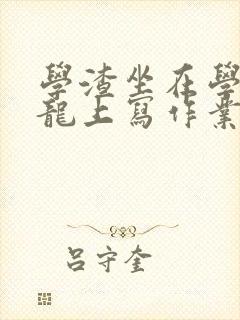 學渣坐在學
龍上寫作業
呂守奎